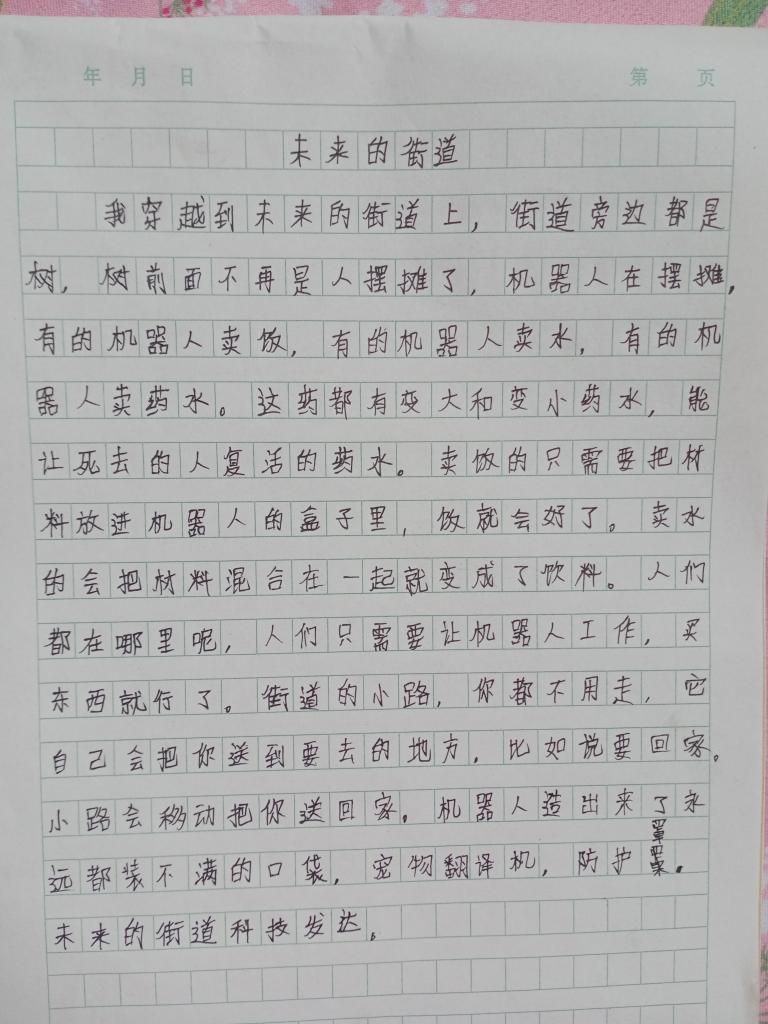 年 月 日 第 页
未来的街道
我穿越到未来的街道上，街道旁边都是
树，树前面不再是人摆摊了，机器人在摆摊，
有的机器人卖饭，有的机器人卖水，有的机
器人卖药水。这药都有变大和变小药水，能
让死去的人复活的药水。卖饭的只需要把材
料放进机器人的盒子里，饭就会好了。卖水
的会把材料混合在一起就变成了饮料。人们
都在哪里呢，人们只需要让机器人工作，买
东西就行了。街道的小路，你都不用走，它
自己会把你送到要去的地方，比如说要回家。
小路会移动把你送回家。机器人造出来了永
远都装不满的口袋，宠物翻译机，防护罩。
未来的街道科技发达。